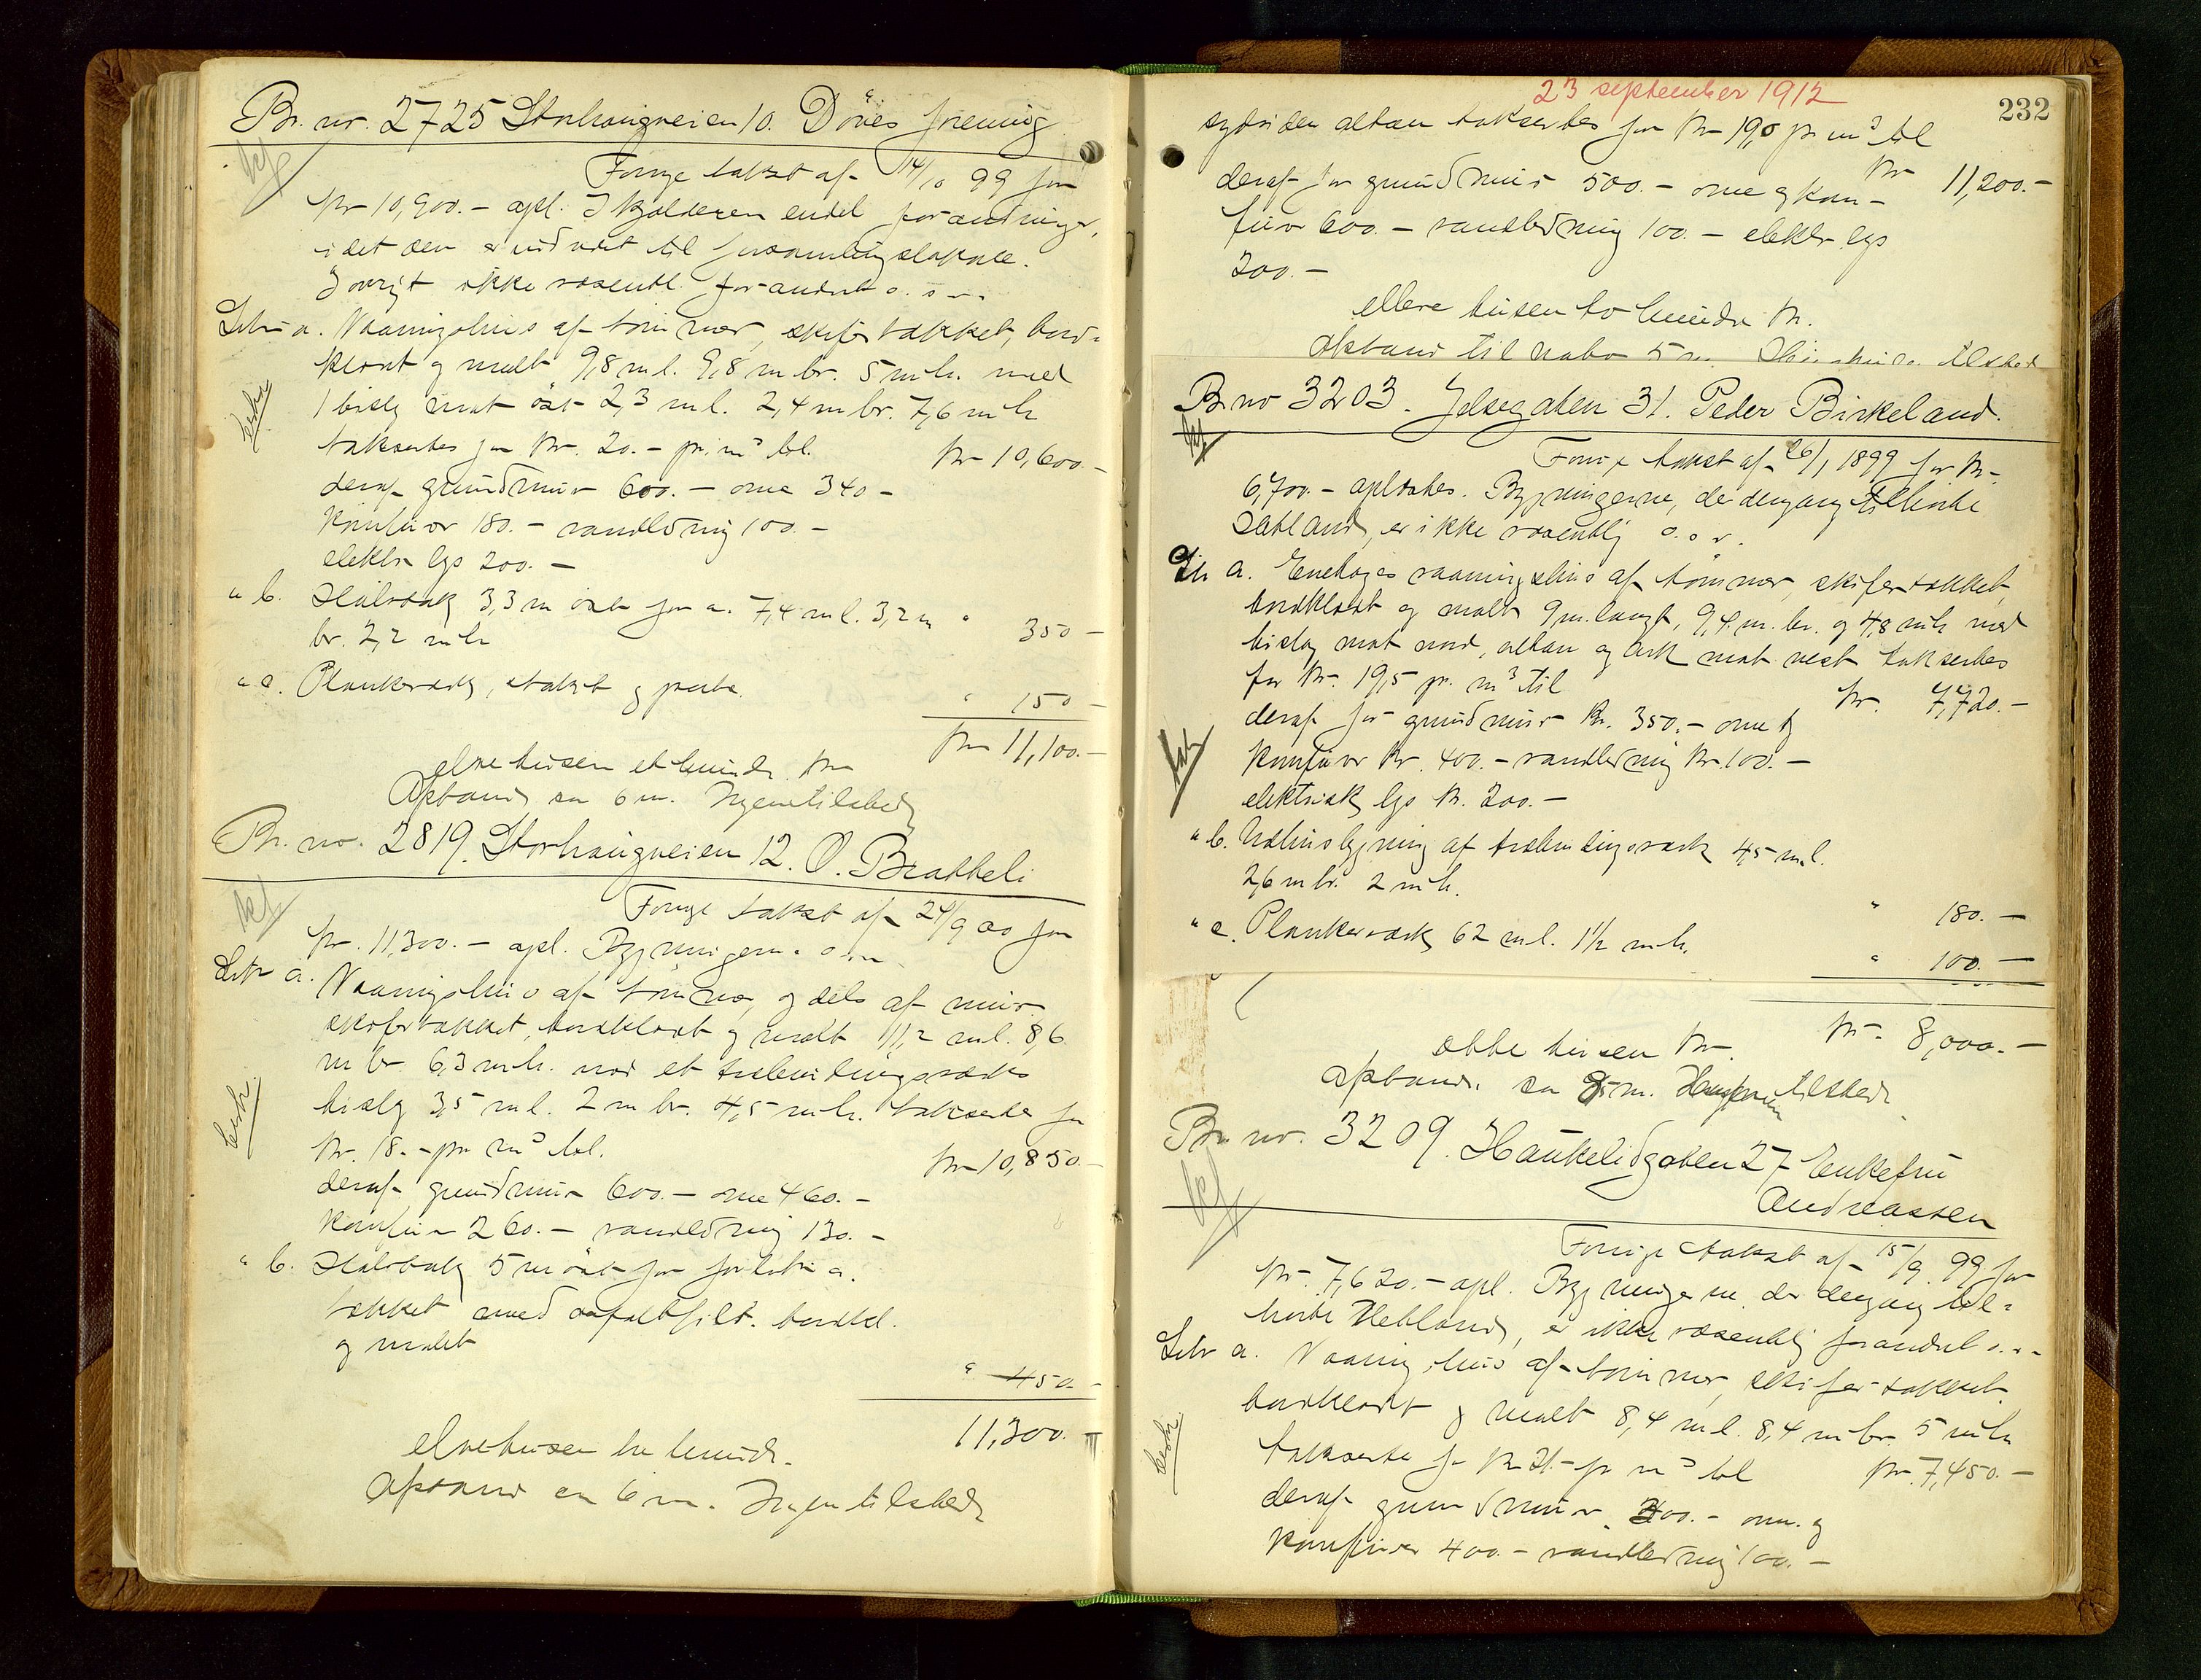 Br. nr. 2725 Storhaugveien 10. Døves forening
Forrige takst af 14/10 99 for
kr 10,900.- opl. I kjælderen endel forandringer,
idet den er indredet til forsamlingslokale.
Iøvrigt ikke væsentl. forandret o. s. v.
Litr a. Vaaningshus af tømmer, skifertækket, bord-
klædt og malt 9,8 m l. 9,8 m br. 5 m h. med
1 bislag mot øst 2,3 m l. 2,4 m br. 7,6 m h
takseres for kr. 20.- pr. m³ til
kr 10,600.-
deraf grundmur 600.- ovne 340.-
komfur 180.- vandledning 100.-
elektr. lys 200.-
" b. Halvtak 3,3 m øst for a. 7,4 m l. 3,2 m
br. 2,2 m h
" 350 -
" c. Plankeværk, stakit og porte
" 150 -
kr 11,100.-
elvehusen et hundr. kr
Afstand ca 6 m. Ingen tilstede
Br. nr. 2819. Storhaugveien 12. O. Brakkeli
Forrige takst af 24/9 00 for
kr. 11,300.- opl. Bygningerne o.s.v.
Litr a. Vaaningshus af tømmer og dels af mur
skifertækket, bordklædt og malt 11,2 m l. 8,6
m br 6,3 m h. med et utmuringsværks
bislag 3,5 m l. 2 m br. 4,5 m h. takseres for
kr. 18.- pr m³ til.
kr 10,850.-
deraf grundmur 600.- ovne 460.-
komfur 260.- vandledning 130.-
" b. Halvtak 5 m øst for litr a.
tækket med asfaltfilt. bordkl.
og malet
" 450.-
11,300.-
elvehusen tre hundr.
Afstand ca 6 m. Ingen tilstede
23 september 1912
232
sydsiden altan takseres for kr 19,0 pr m³ til
kr 11,200.-
deraf for grundmur 500.- ovne og kom-
furer 600.- vandledning 100.- elektr. lys
200.-
elleve tusen to hundre kr.
Afstand til nabo 5 m. tilstede
Br no 3203. Jelsegaten 31. Peder Birkeland.
Forrige takst af 26/1 1899 for kr.
6,700.- oplæstes. Bygningerne, der dengang tilhørte
er ikke væsentlig o. s. v.
Litr a. Enetages vaaningshus af tømmer, skifertækket,
bordklædt og malt 9 m. langt, 9,4 m. br. og 4,8 m h med
bislag mot nord, altan og ark mot vest takseres
for kr. 19,5 pr. m³ til
kr. 7,720.-
deraf for grundmur kr. 350.- ovne og
komfurer kr. 400.- vandledning kr. 100.-
elektrisk lys kr. 200.-
" b. Uthusbygning af utmuringsværk 4,5 m l.
2,6 m br. 2 m h.
" 180.-
" c. Plankeværk 62 m l. 1½ m h.
" 100.-
kr. 8,000.-
otte tusen kr.
afstand ca 5 m. tilstede
Br nr. 3209. Haukelidgaten 27 Enkefru
Andreassen
Forrige takst af 15/9 99 for
kr. 7,620.- opl. Bygningerne der dengang til-
hørte Hebland, er ikke væsentlig forandret o.s.v.
Litr a. Vaaningshus af tømmer, skifertækket
bordklædt og malt 8,4 m l. 8,4 m br. 5 m h
takseres for kr 21.- pr m³ til
kr. 7,450.-
deraf grundmur 300.- ovne og
komfurer 400.- vandledning 100.-